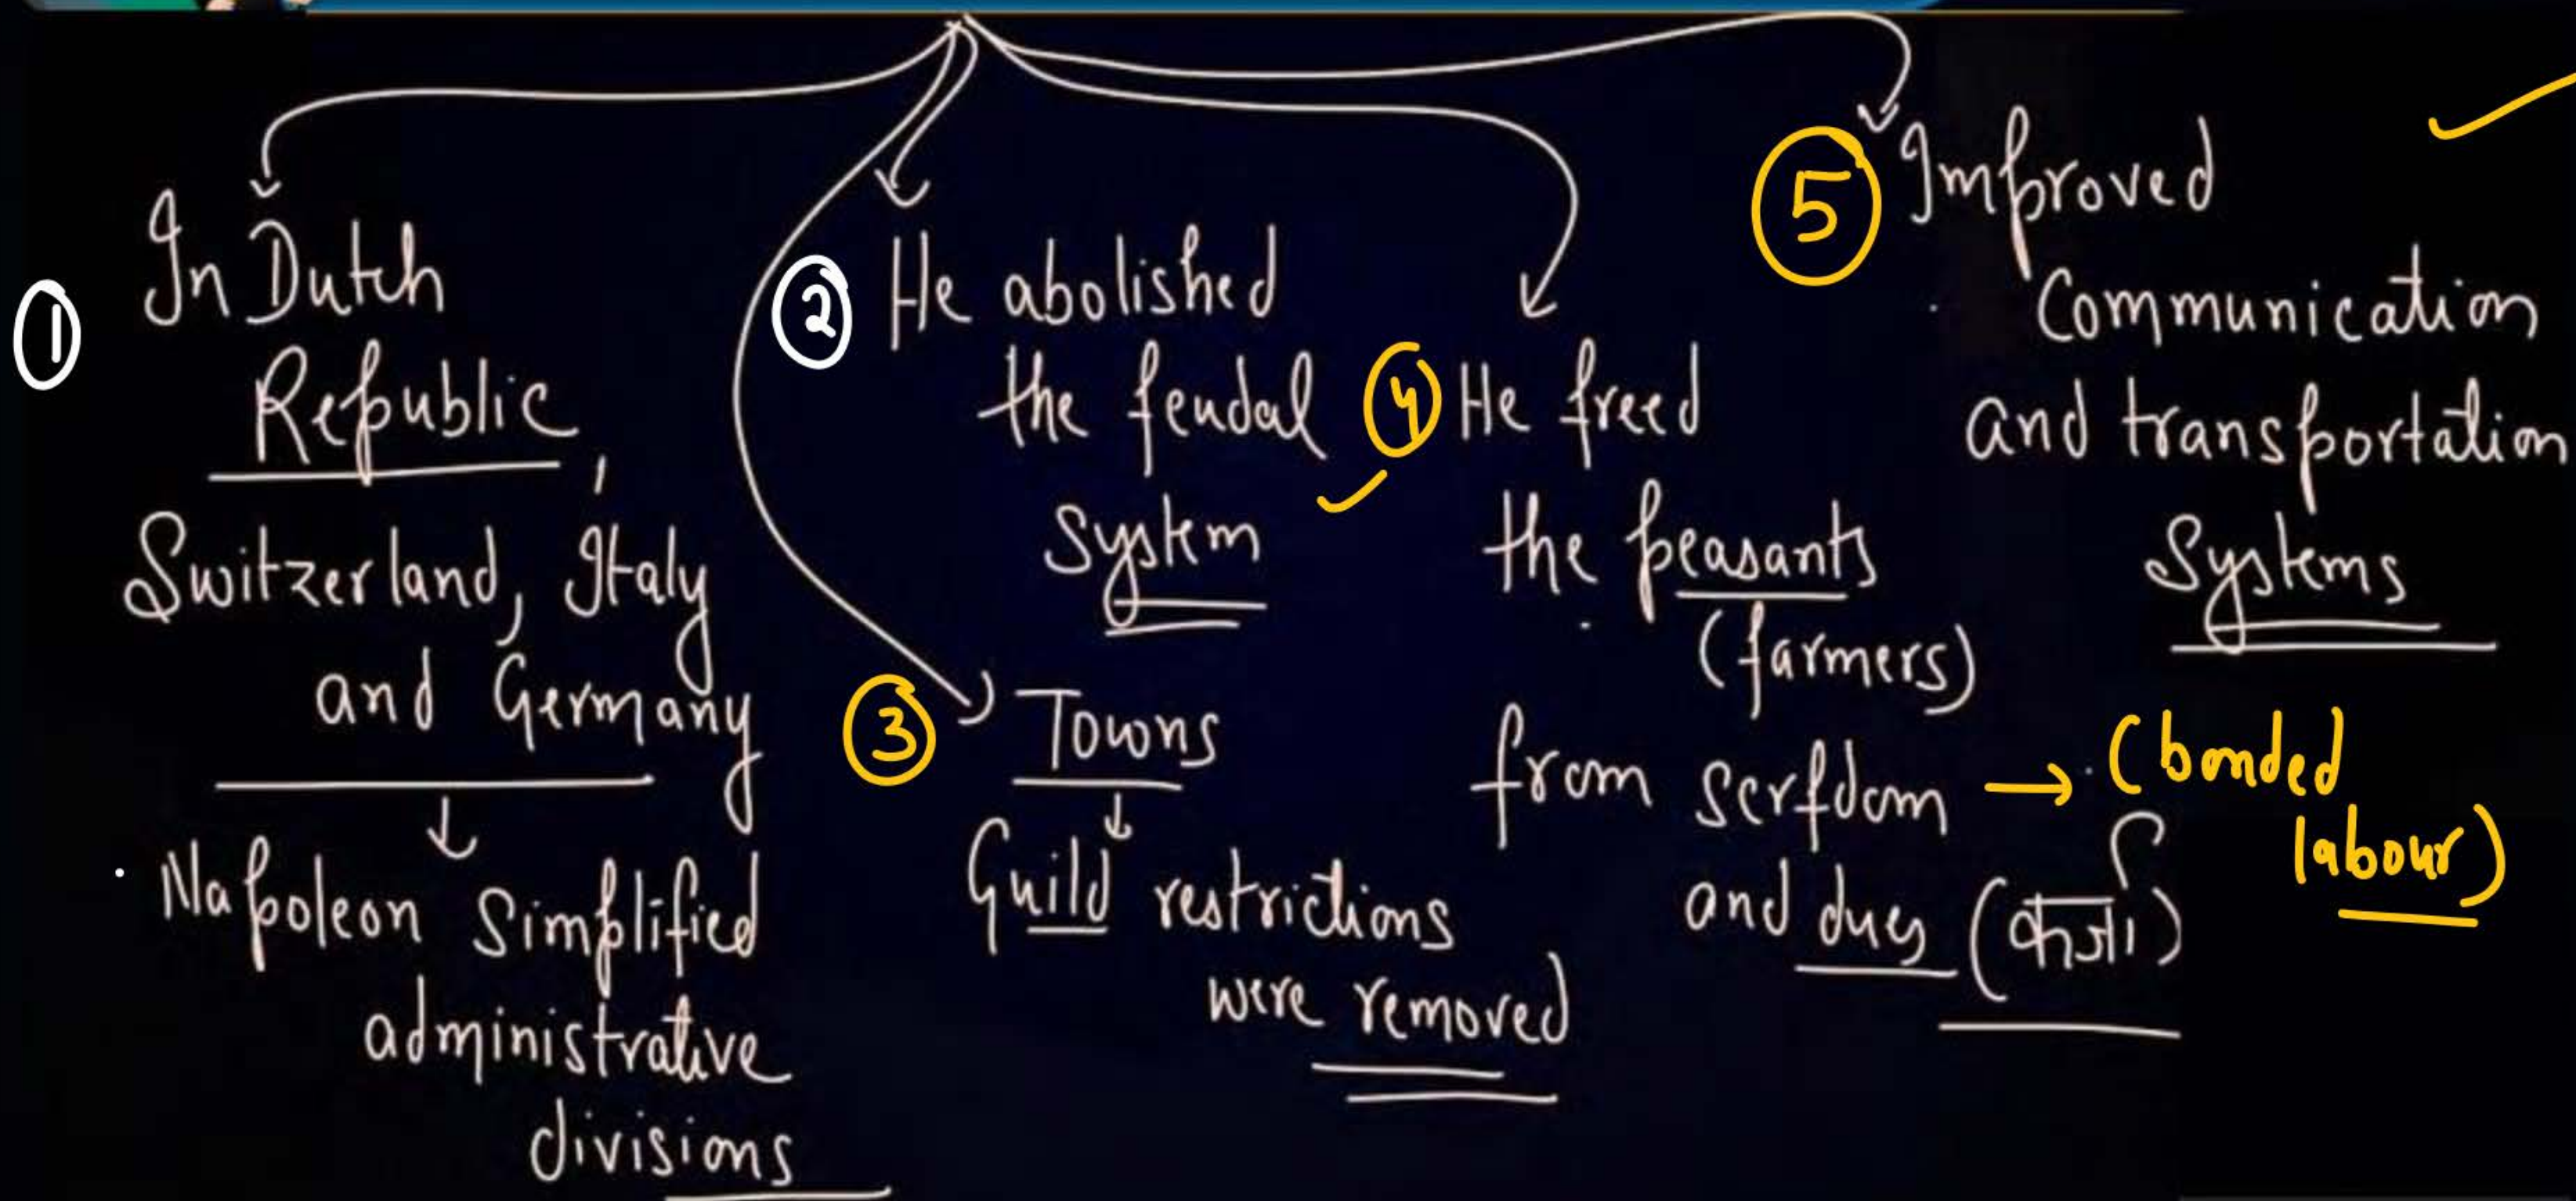 ①
In Dutch
Republic,
Switzerland, Italy
and Germany
Napoleon Simplified
administrative
divisions
② He abolished
the feudal
System
③ Towns
Guild restrictions
were removed
④ He freed
the peasants
(farmers)
from serfdom → (bonded
labour)
and dues (कर्जा)
⑤ Improved
Communication
and transportation
Systems